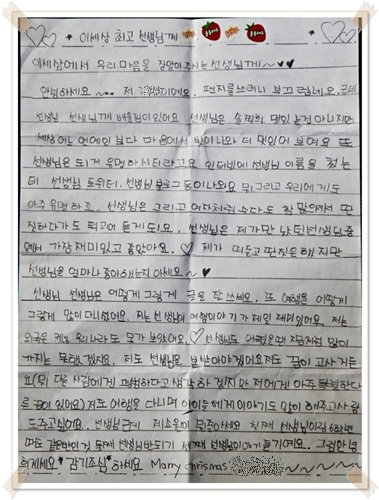 * 이세상 최고 선생님께
이세상에서 우리 마음을 잘알아 주시는 선생님께~♥♥
안녕하세요 ~.. 저 이에요. 편지를쓰려니 부끄럽네요. 근데
선생님 선생님께 배울점이있어요! 선생님은 솔직히 멋있는건 아니지만
세상 어느 연예인 보다 마음에서 빛이나와 더 멋있어 보여요 또
선생님은 되게 유명하시더라고요 인터넷에 선생님 이름을 쳤는
데 선생님 트위터, 선생님 블로그 등이나와요 뭐 그리고 우리에게도
아주 유명하죠. 선생님은 그리고 여자처럼 수다도 참 많으셔서 딴
짓하다가도 되고 듣게 되요. 선생님은 제가만 났던선생님중
에서 가장 재미있고 좋았아요. ♡ 제가 떠들고 딴짓은 했지만
선생님을 얼마나 좋아하는지 아세요~♥
선생님 선생님은 어떻게 그렇게 글을 잘 쓰세요. 또 여행을 어떻게
그렇게 많이 다니셨어요. 저는 선생님의 여행이야기가 제일 재미있어요. 저는
외국은 커녕 우리나라도 못가 보았어요. ♡ 선생님도 어렸을 때 저처럼 많이
가지는 못했겠지요. 저도 선생님을 본받아야겠어요 저도 꿈이 교사 거든
요(뭐 다른 사람에게 평범하다고 생각하겠지만 저에게 아주 특별하다
른 꿈이 있어요) 저도 여행을 다니며 아이들에게 이야기도 많이 해주고 사랑
도주고싶어요. 선생님 근데
때도 같은반인
히계세요 *감기조심* 하세요 Marry chrismas